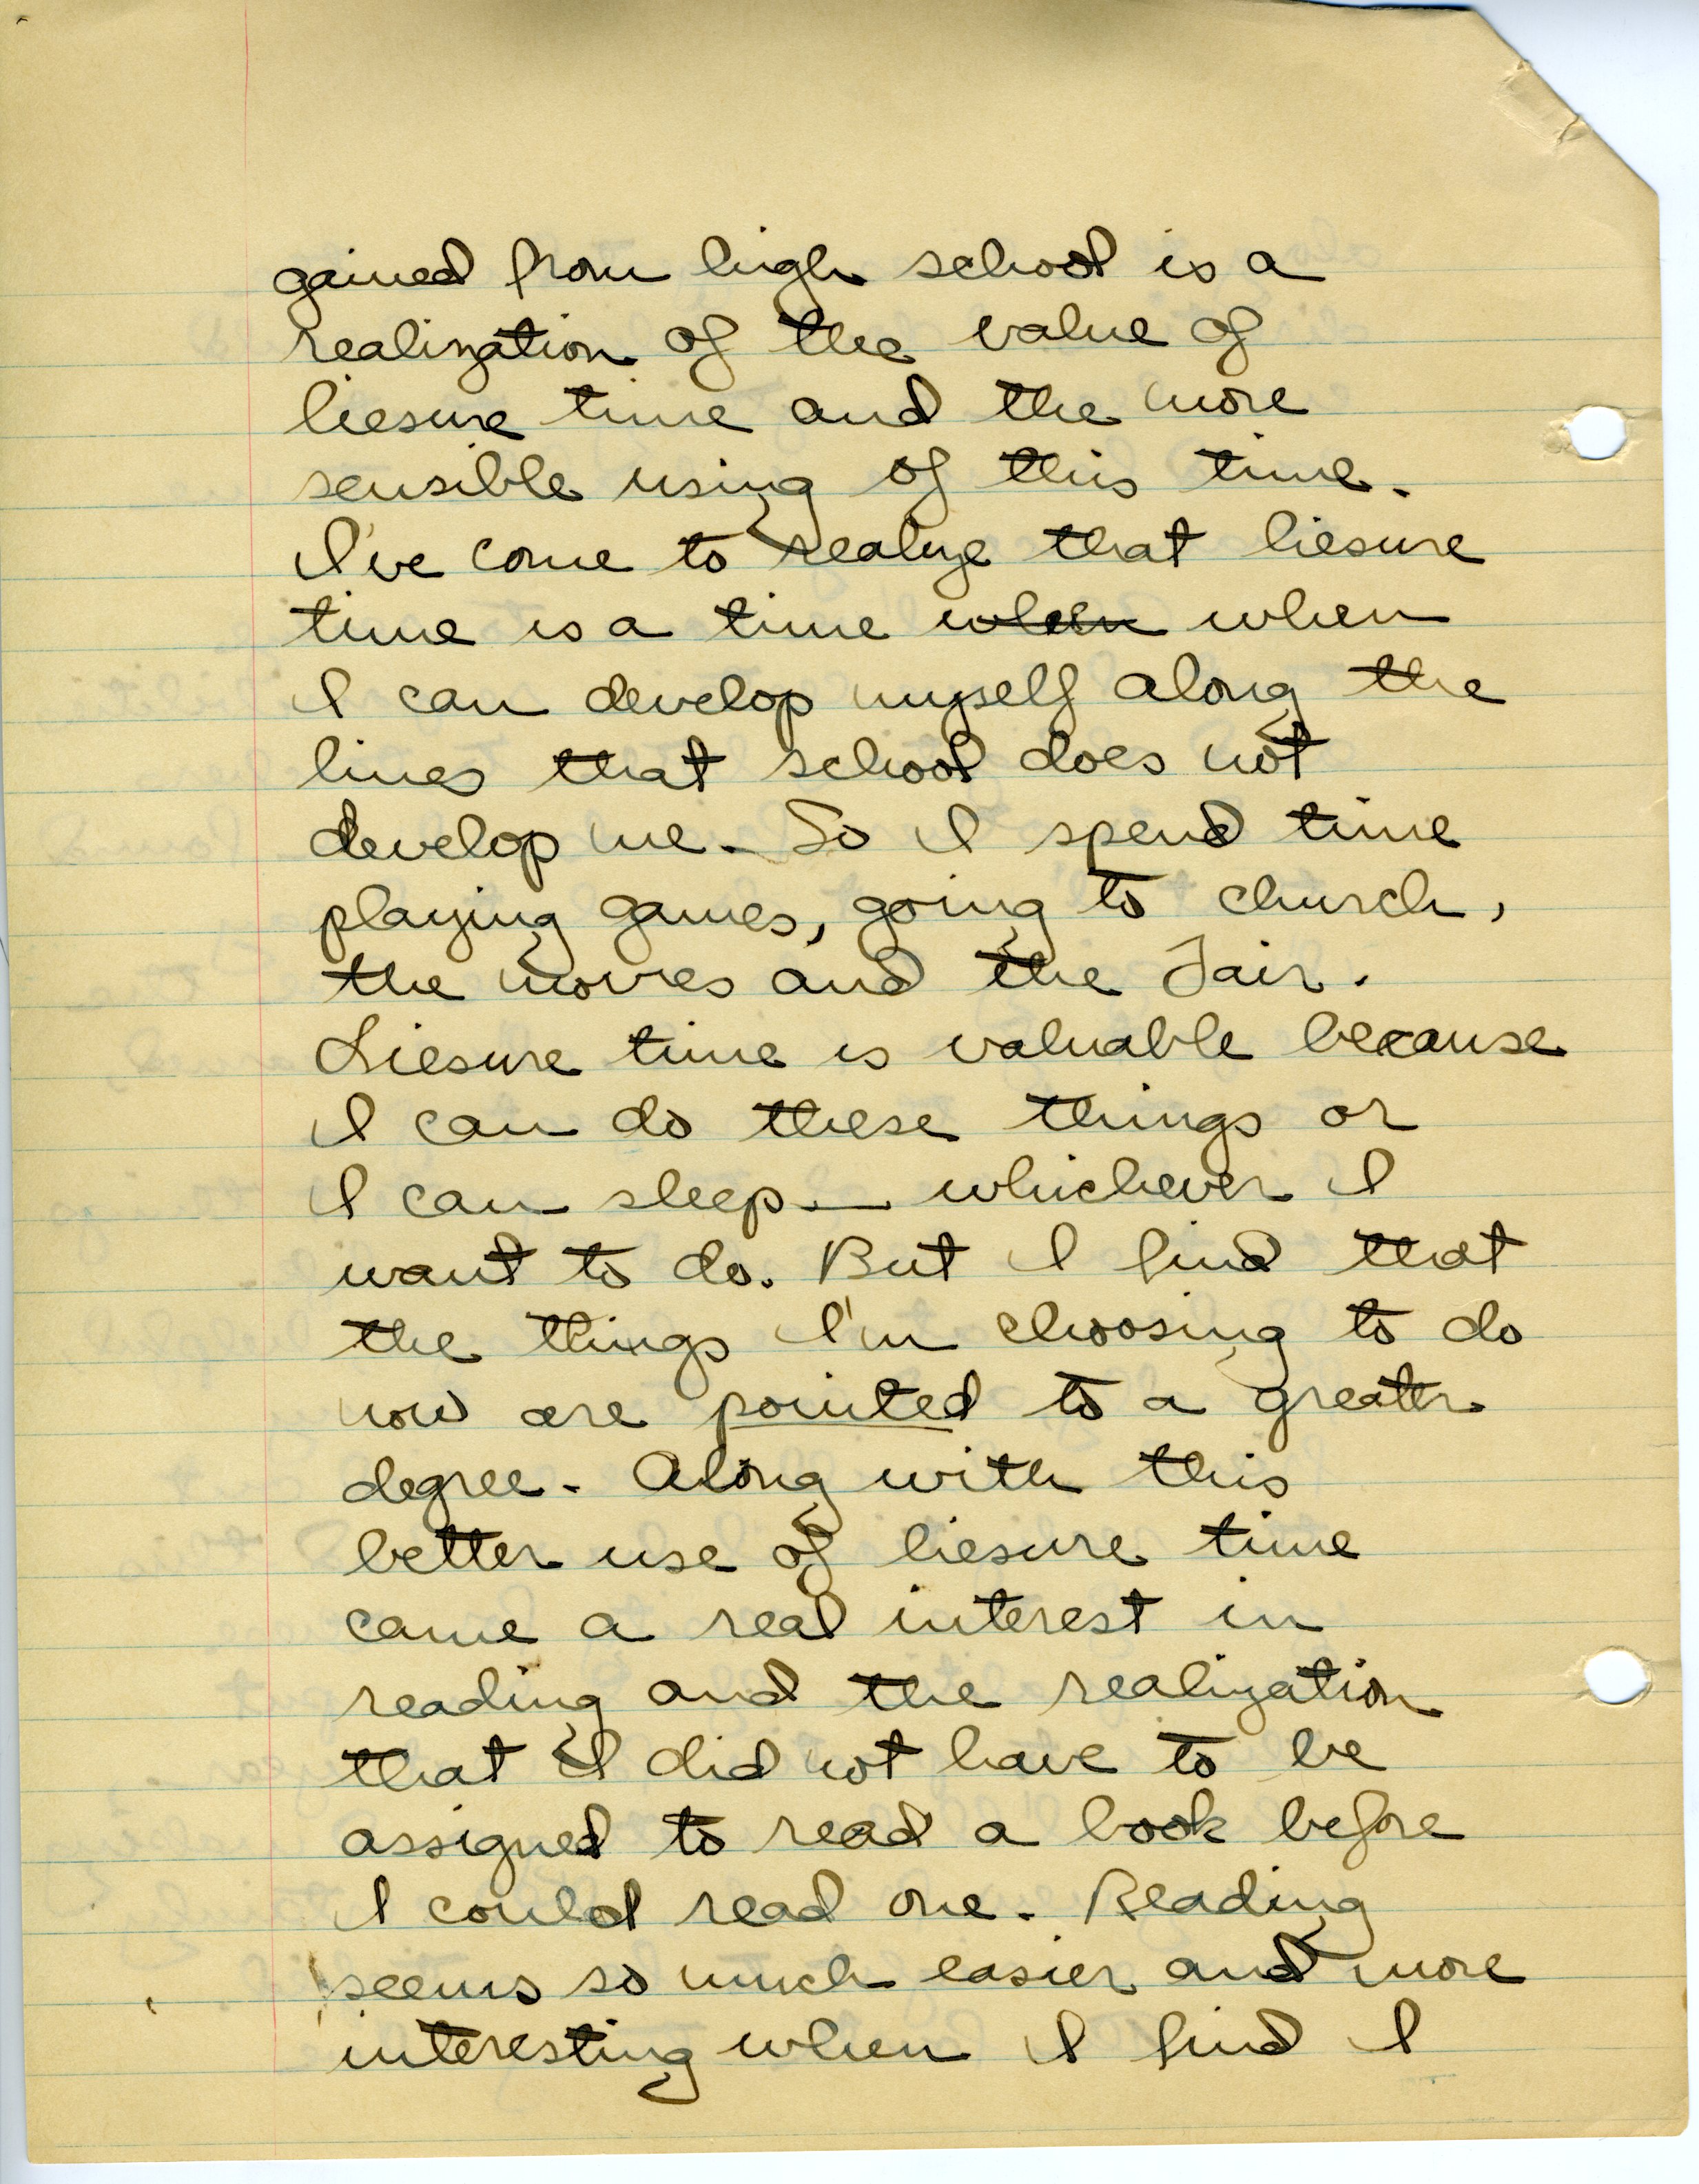 gained from high school is a
realization of the value of
liesure time and the more
sensible using of this time.
I've come to realize that liesure
time is a time when when
I can develop myself along the
lines that school does not
develop me. So I spend time
playing games, going to church,
the movies and the Fair.
Liesure time is valuable because
I can do these things or
I can sleep — whichever I
want to do. But I find that
the things I'm choosing to do
now are pointed to a greater
degree. Along with this
better use of liesure time
came a real interest in
reading and the realization
that I did not have to be
assigned to read a book before
I could read one. Reading
seems so much easier and more
interesting when I find I